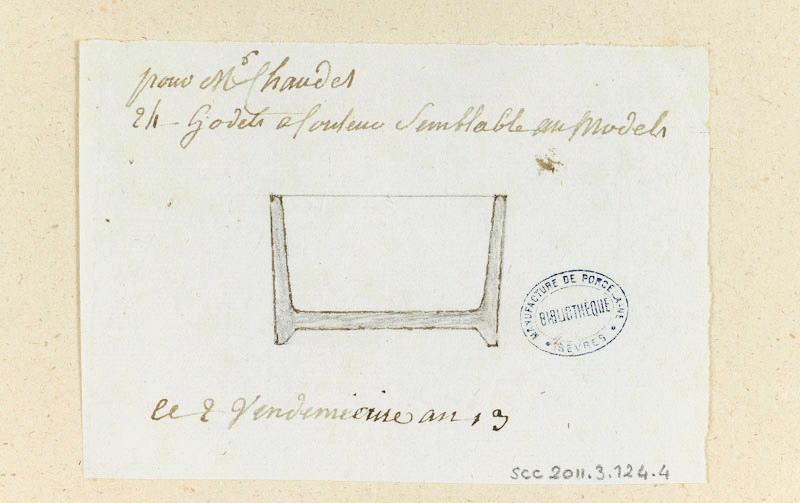 pour Mr Chaudet
24 Godets a Couleur Semblable au Models
MANUFACTURE DE PORCELAINE
BIBLIOTHÈQUE
SÈVRES
le 2 Vendemiaire an 13
SCC 2011.3.124.4